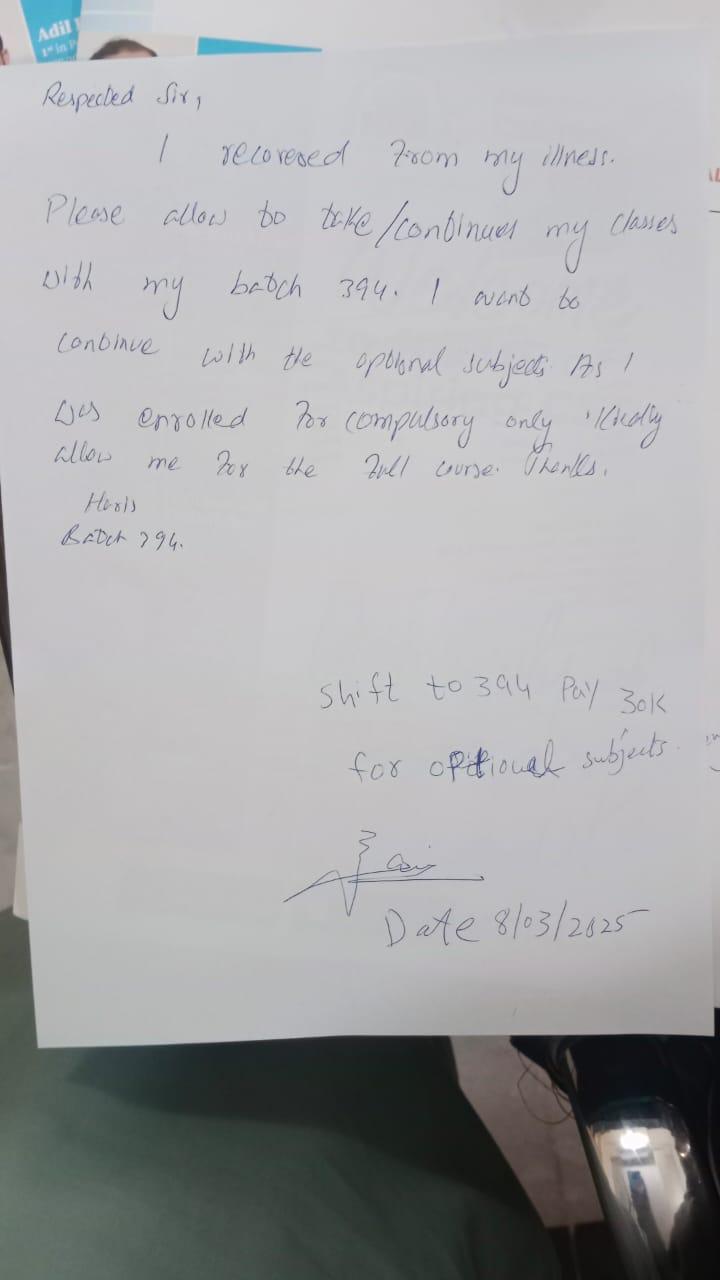 Adil
1st in P
Respected Sir,
I recovered from my illness.
Please allow to take/continues my classes
with my batch 394. I want to
continue with the optional subjects As I
was enrolled for compulsory only. Kindly
allow me for the full course. Thanks.
Haris
Batch 394.
Shift to 394 Pay 30K
for optional subjects.
Date 8/03/2025